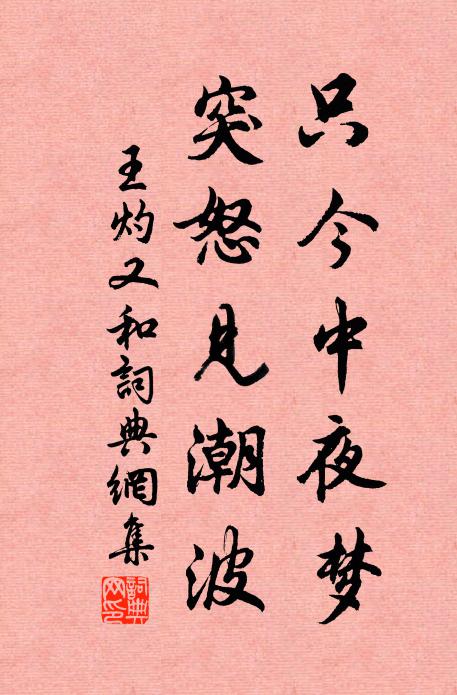 只今中夜梦
突怒见潮波
王灼又和詞典網集
詞典网印